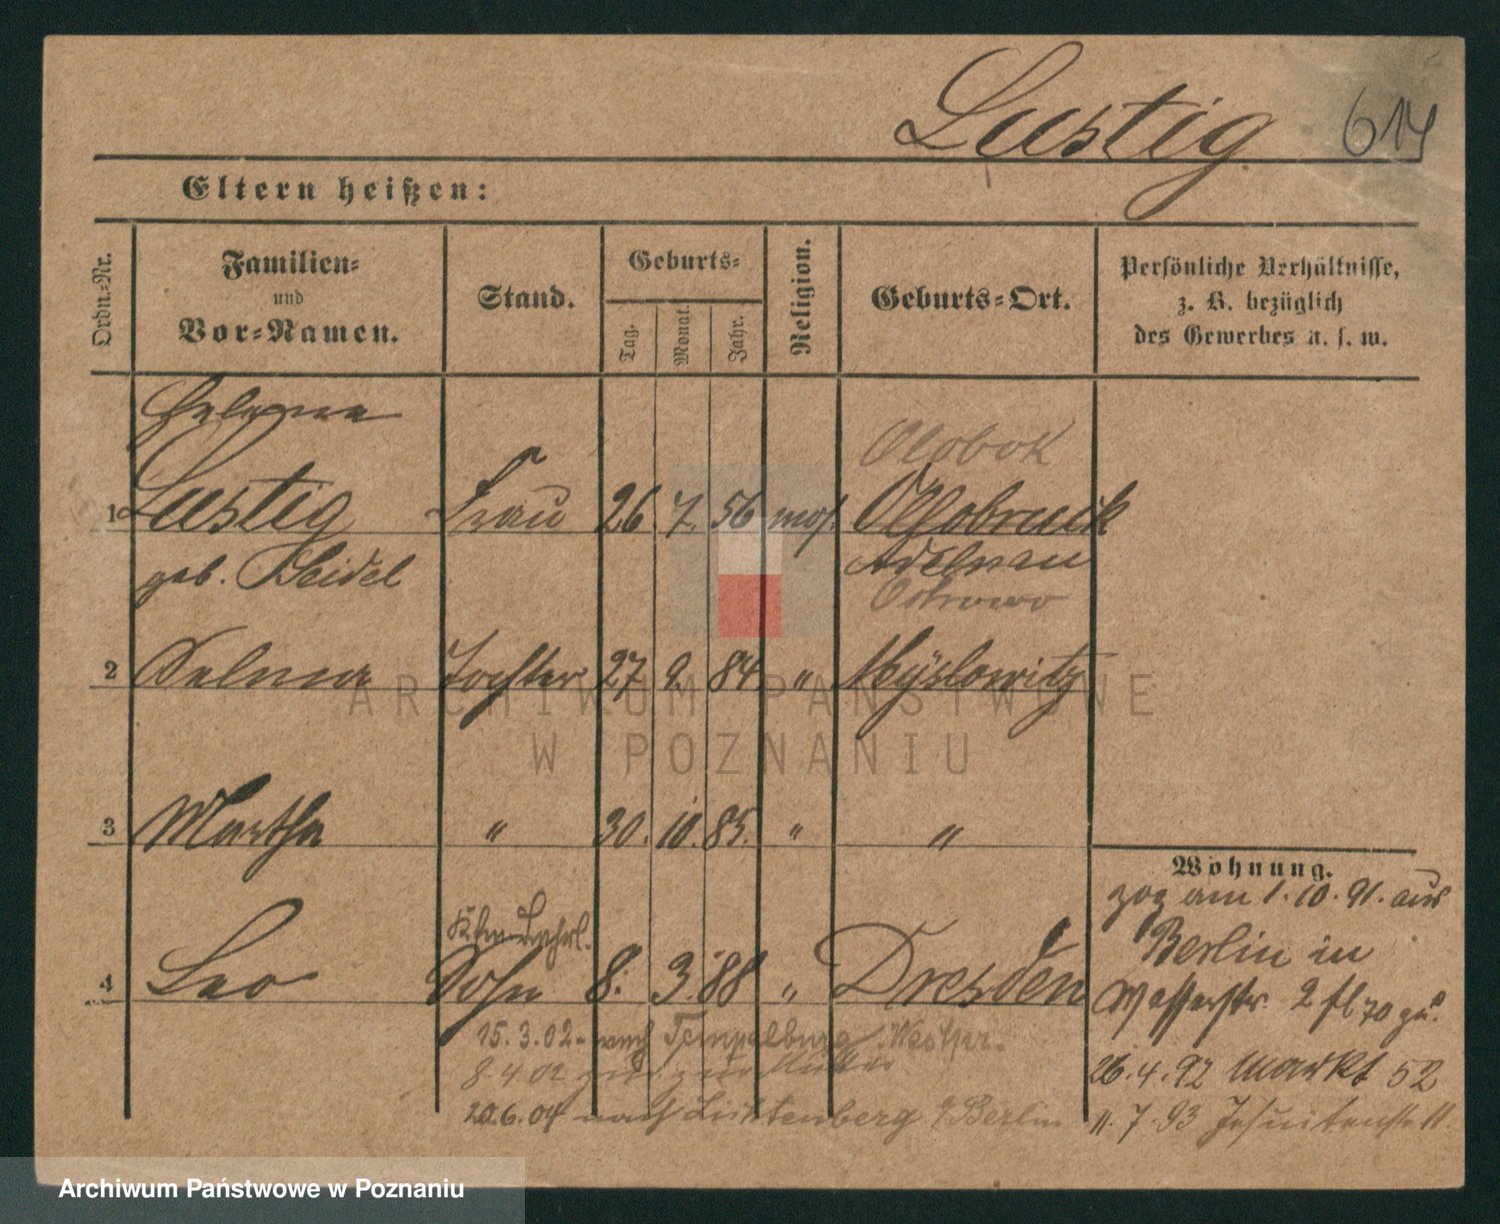 Lustig 614
Eltern heißen:
Ordn.-Nr.
Familien-
und
Vor-Namen.
Stand.
Geburts-
Tag.
Monat.
Jahr.
Religion.
Geburts-Ort.
Persönliche Verhältnisse,
z. B. bezüglich
des Gewerbes u. s. w.
Helene
Olobok
1 Lustig Frau 26. 7. 56 mos.
geb. Adelnau
Ostrowo
2 Selma Tochter 27 9. 84 " Myslowitz
3 Martha " 30. 10. 85. " "
Wohnung.
zog am 1. 10. 91. aus
Berlin in
4 Leo Sohn 8. 3. 88 " Dresden
Wasserstr. 2
15. 3. 02. nach Tempelburg Westpr.
26. 4. 92 Markt 52
8. 4. 02 zur Mutter
20. 6. 04 nach Lichtenberg b/Berlin
11. 7. 93 Jesuitenstr. 11.
ARCHIWUM PAŃSTWOWE
W POZNANIU
Archiwum Państwowe w Poznaniu